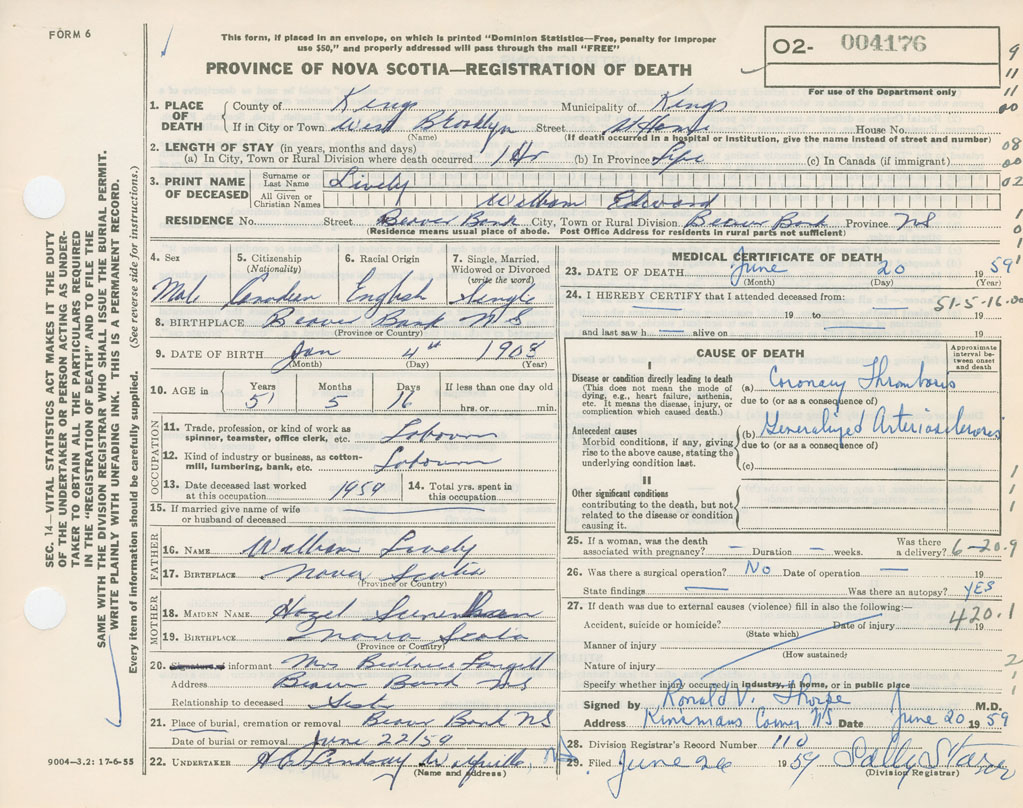 FORM 6
This form, if placed in an envelope, on which is printed "Dominion Statistics—Free, penalty for improper
use $50," and properly addressed will pass through the mail "FREE"
PROVINCE OF NOVA SCOTIA—REGISTRATION OF DEATH
02- 004176
For use of the Department only
SEC. 14—VITAL STATISTICS ACT MAKES IT THE DUTY
OF THE UNDERTAKER OR PERSON ACTING AS UNDER-
TAKER TO OBTAIN ALL THE PARTICULARS REQUIRED
IN THE "REGISTRATION OF DEATH" AND TO FILE THE
SAME WITH THE DIVISION REGISTRAR WHO SHALL ISSUE THE BURIAL PERMIT.
WRITE PLAINLY WITH UNFADING INK. THIS IS A PERMANENT RECORD.
Every item of information should be carefully supplied. (See reverse side for instructions.)
1. PLACE OF DEATH County of Kings Municipality of Kings
If in City or Town West Brooklyn Street At Home House No.
(Name) (If death occurred in a hospital or institution, give the name instead of street and number)
2. LENGTH OF STAY (in years, months and days)
(a) In City, Town or Rural Division where death occurred 1 Hr (b) In Province Life (c) In Canada (if immigrant)
3. PRINT NAME OF DECEASED Surname or Last Name Lively
All Given or Christian Names William Edward
RESIDENCE No. Street Beaver Bank City, Town or Rural Division Beaver Bank Province NS
(Residence means usual place of abode. Post Office Address for residents in rural parts not sufficient)
4. Sex 5. Citizenship (Nationality) 6. Racial Origin 7. Single, Married, Widowed or Divorced (write the word)
Male Canadian English Single
8. BIRTHPLACE Beaver Bank NS
(Province or Country)
9. DATE OF BIRTH Jan 4th 1908
(Month) (Day) (Year)
10. AGE in Years Months Days If less than one day old
51 5 16 hrs. or min.
OCCUPATION
11. Trade, profession, or kind of work as
spinner, teamster, office clerk, etc. Labourer
12. Kind of industry or business, as cotton-
mill, lumbering, bank, etc. Labourer
13. Date deceased last worked at this occupation 1959 14. Total yrs. spent in this occupation
15. If married give name of wife
or husband of deceased
FATHER
16. NAME William Lively
17. BIRTHPLACE Nova Scotia
(Province or Country)
MOTHER
18. MAIDEN NAME Hazel
19. BIRTHPLACE Nova Scotia
(Province or Country)
20. Signature of informant Mrs Beatrice Langell
Address Beaver Bank NS
Relationship to deceased Sister
21. Place of burial, cremation or removal Beaver Bank NS
Date of burial or removal June 22/59
22. UNDERTAKER Lindsay Wolfville, NS
(Name and address)
9004—3.2: 17-6-55
MEDICAL CERTIFICATE OF DEATH
23. DATE OF DEATH June 20 1959
(Month) (Day) (Year)
24. I HEREBY CERTIFY that I attended deceased from:
51-5-16-00
— 19 to — 19
and last saw h — alive on — 19
CAUSE OF DEATH
Approximate interval between onset and death
I
Disease or condition directly leading to death
(This does not mean the mode of
dying, e.g., heart failure, asthenia,
etc. It means the disease, injury, or
complication which caused death.)
(a) Coronary Thrombosis
due to (or as a consequence of)
Antecedent causes
Morbid conditions, if any, giving
rise to the above cause, stating the
underlying condition last.
(b) Generalized Arteriosclerosis
due to (or as a consequence of)
(c)
II
Other significant conditions
contributing to the death, but not
related to the disease or condition
causing it.
25. If a woman, was the death
associated with pregnancy? — Duration — weeks. Was there a delivery? 6-20-9
26. Was there a surgical operation? No Date of operation — 19
State findings — Was there an autopsy? YES
27. If death was due to external causes (violence) fill in also the following:—
420.1
Accident, suicide or homicide? Date of injury 19
(State which)
Manner of injury
(How sustained)
Nature of injury
Specify whether injury occurred in industry, in home, or in public place
Signed by Ronald V. Thorpe M.D.
Address Kinsmans Corner NS Date June 20 1959
28. Division Registrar's Record Number 110
29. Filed June 26 1959 Sally Starr
(Division Registrar)